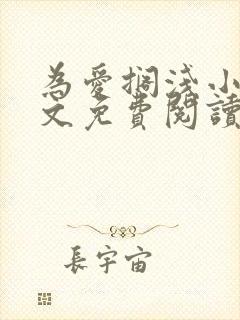 為愛擱淺小
文免費閱讀
長宇宙